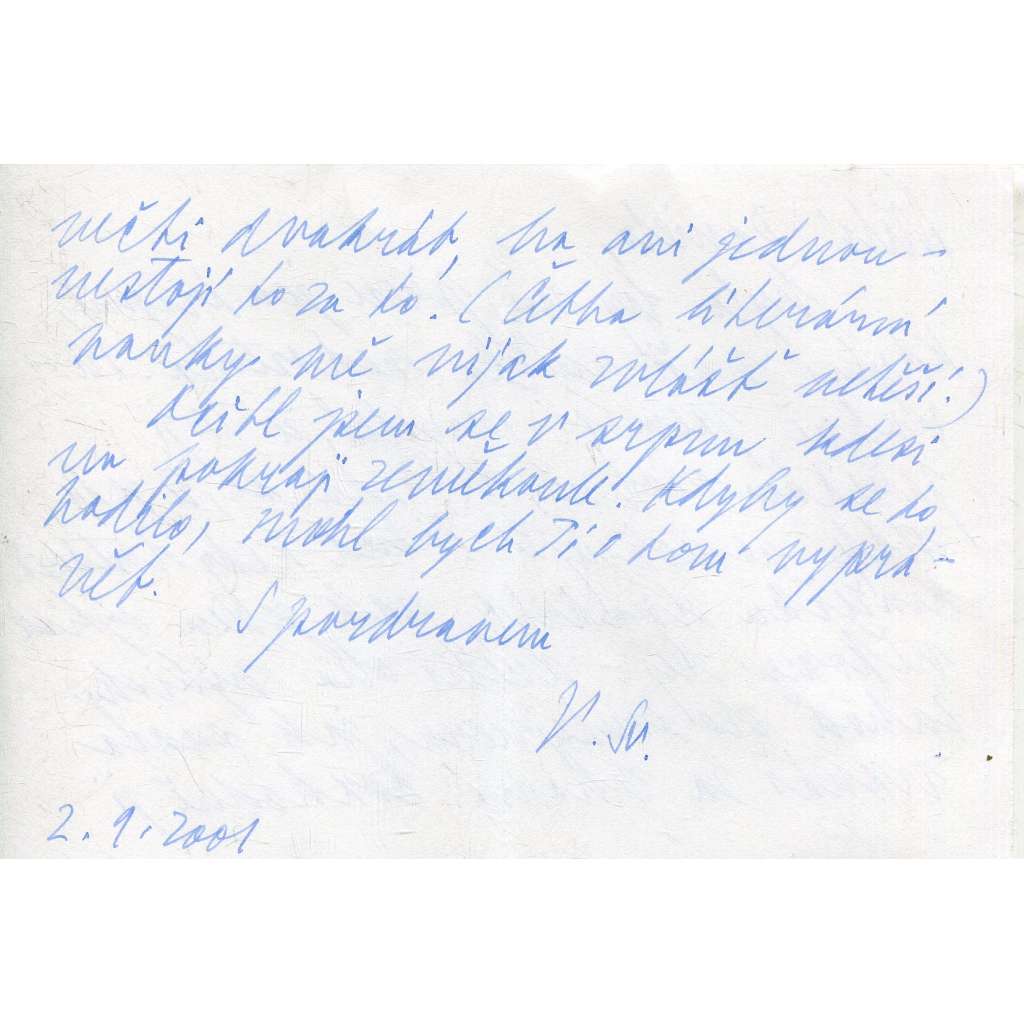 nečti dvakrát, ba ani jednou –
nestojí to za to. (Četba literární
nauky mě nijak zvlášť netěší.)
Octl jsem se v srpnu kdesi
na pokraji zeměkoule. Kdyby se to
hodilo, mohl bych Ti o tom vyprá-
vět.
S pozdravem
V.
2. 9. 2001